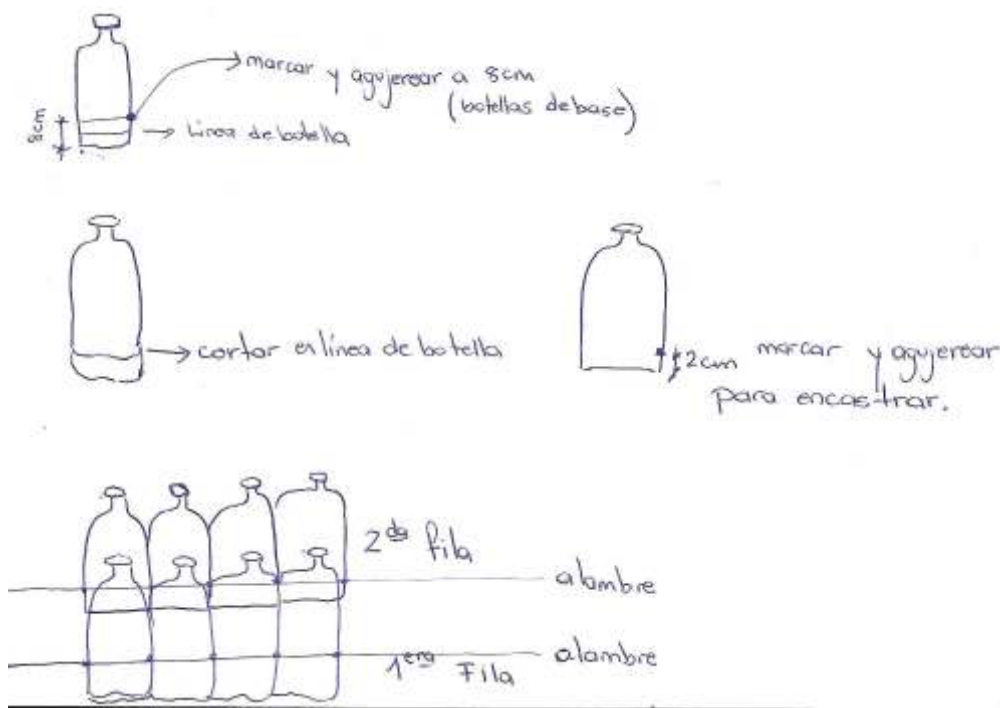 marcar y agujerear a 8cm
(botellas de base)
8cm
Línea de botella
cortar en línea de botella
2cm marcar y agujerear
para encastrar.
2da fila
alambre
alambre
1era Fila